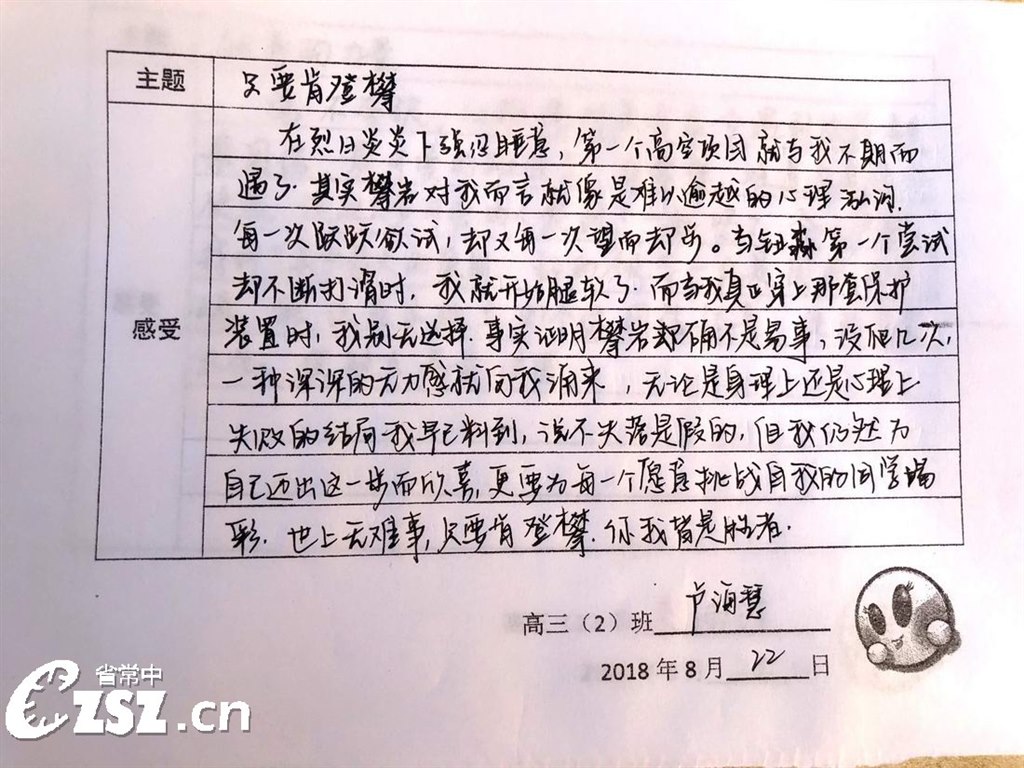 主题 只要肯登攀
在烈日炎炎下强忍睡意，第一个高空项目就与我不期而
遇了.其实攀岩对我而言就像是难以逾越的心理沟.
每一次跃跃欲试，却又每一次望而却步。当钰淼第一个尝试
却不断打滑时，我就开始腿软了.而当我真正穿上那套保护
感受 装置时，我别无选择.事实证明攀岩却确不是易事，没爬几次，
一种深深的无力感就向我涌来，无论是身理上还是心理上
失败的结局我早已料到，说不失落是假的，但我仍然为
自己迈出这一步而欣喜，更要为每一个愿意挑战自我的同学喝
彩.世上无难事，只要肯登攀.你我皆是胜者.
高三（2）班 卢海慧
2018年8月22日
省常中
CZSZ.cn